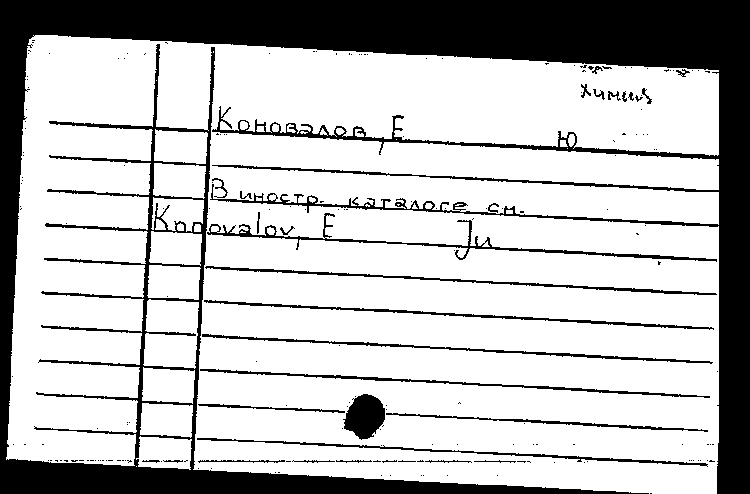 химия
Коновалов, Е Ю
В иностр. каталоге см.
Konovalov, E Ju